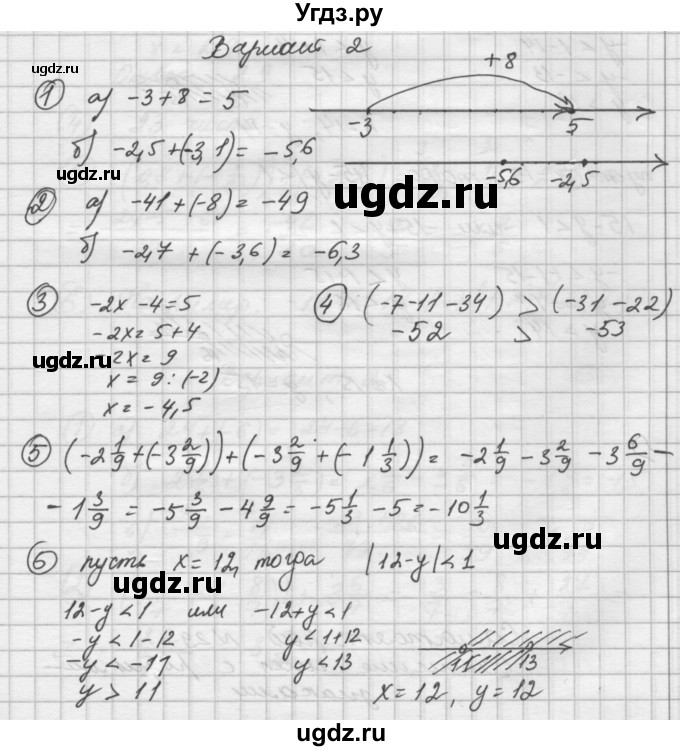 Угдз.ру
Вариант 2
ugdz.ru
① а) -3+8=5
+8
-3 5
б) -2,5+(-3,1)= -5,6
-5,6 -2,5
ugdz.ru
② а) -41+(-8)= -49
б) -2,7 +(-3,6)= -6,3
③ -2x -4=5
-2x= 5+4
-2x= 9
x= 9:(-2)
x= -4,5
ugdz.ru
④ (-7-11-34) > (-31-22)
-52 > -53
⑤ (-2 1/9 +(-3 2/9))+(-3 2/9 +(-1 1/3))= -2 1/9 -3 2/9 -3 6/9 -
-1 3/9 = -5 3/9 -4 9/9 = -5 1/3 -5= -10 1/3
ugdz.ru
⑥ пусть x=12, тогда |12-y|<1
ugdz.ru
12-y<1 или -12+y<1
-y<1-12 y<1+12
-y<-11 y<13
13
y>11 x=12, y=12
ugdz.ru
ugdz.ru